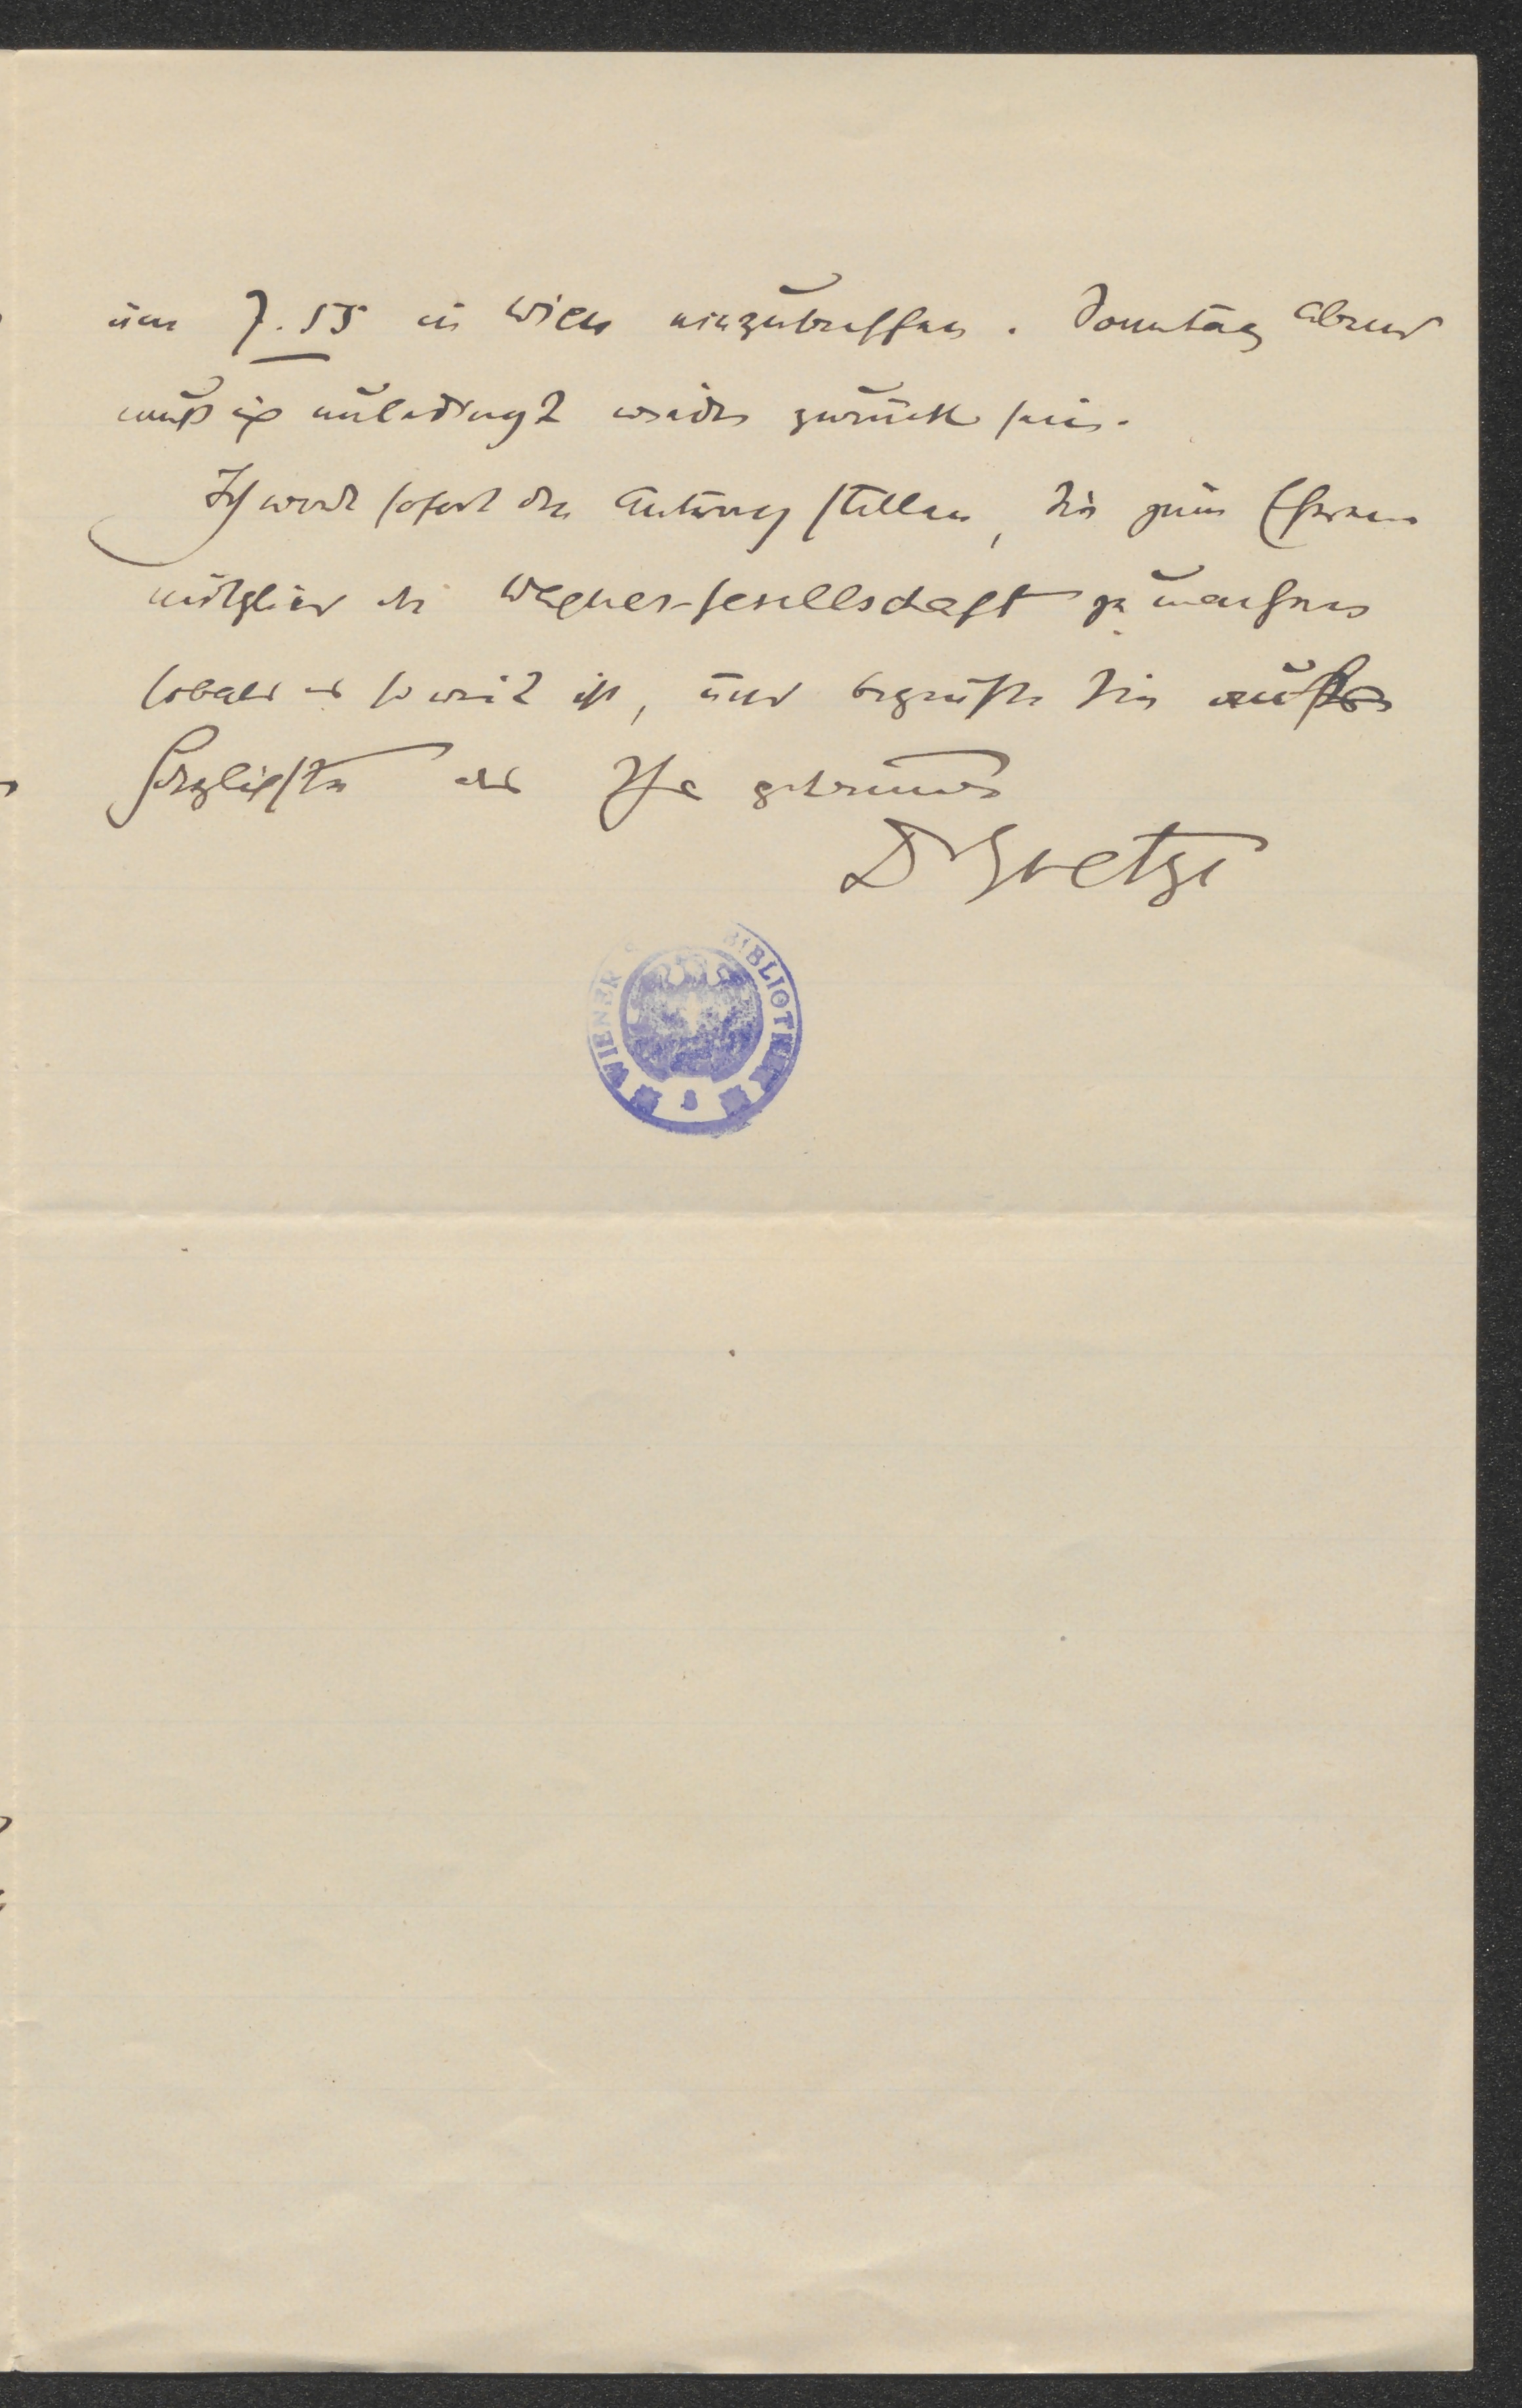 um 7.55 in Wien einzutreffen. Sonntag abend
muß ich unbedingt wieder zurück sein.
Ich werde sofort den Antrag stellen, Sie zum Ehren-
mitglied der Wagner-Gesellschaft zu machen
sobald es so weit ist, und begrüße Sie
herzlichst als Ihr getreuer
D Goetze
WIENER BIBLIOTHEK